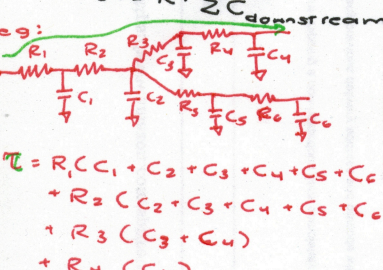 R × Σ C downstream
eg:
R3 R4
R1 R2 C3 C4
C1 C2 R5 C5 R6 C6
τ = R1(C1 + C2 + C3 + C4 + C5 + C6
+ R2 (C2 + C3 + C4 + C5 + C6
+ R3 (C3 + C4)
+ R4 (C